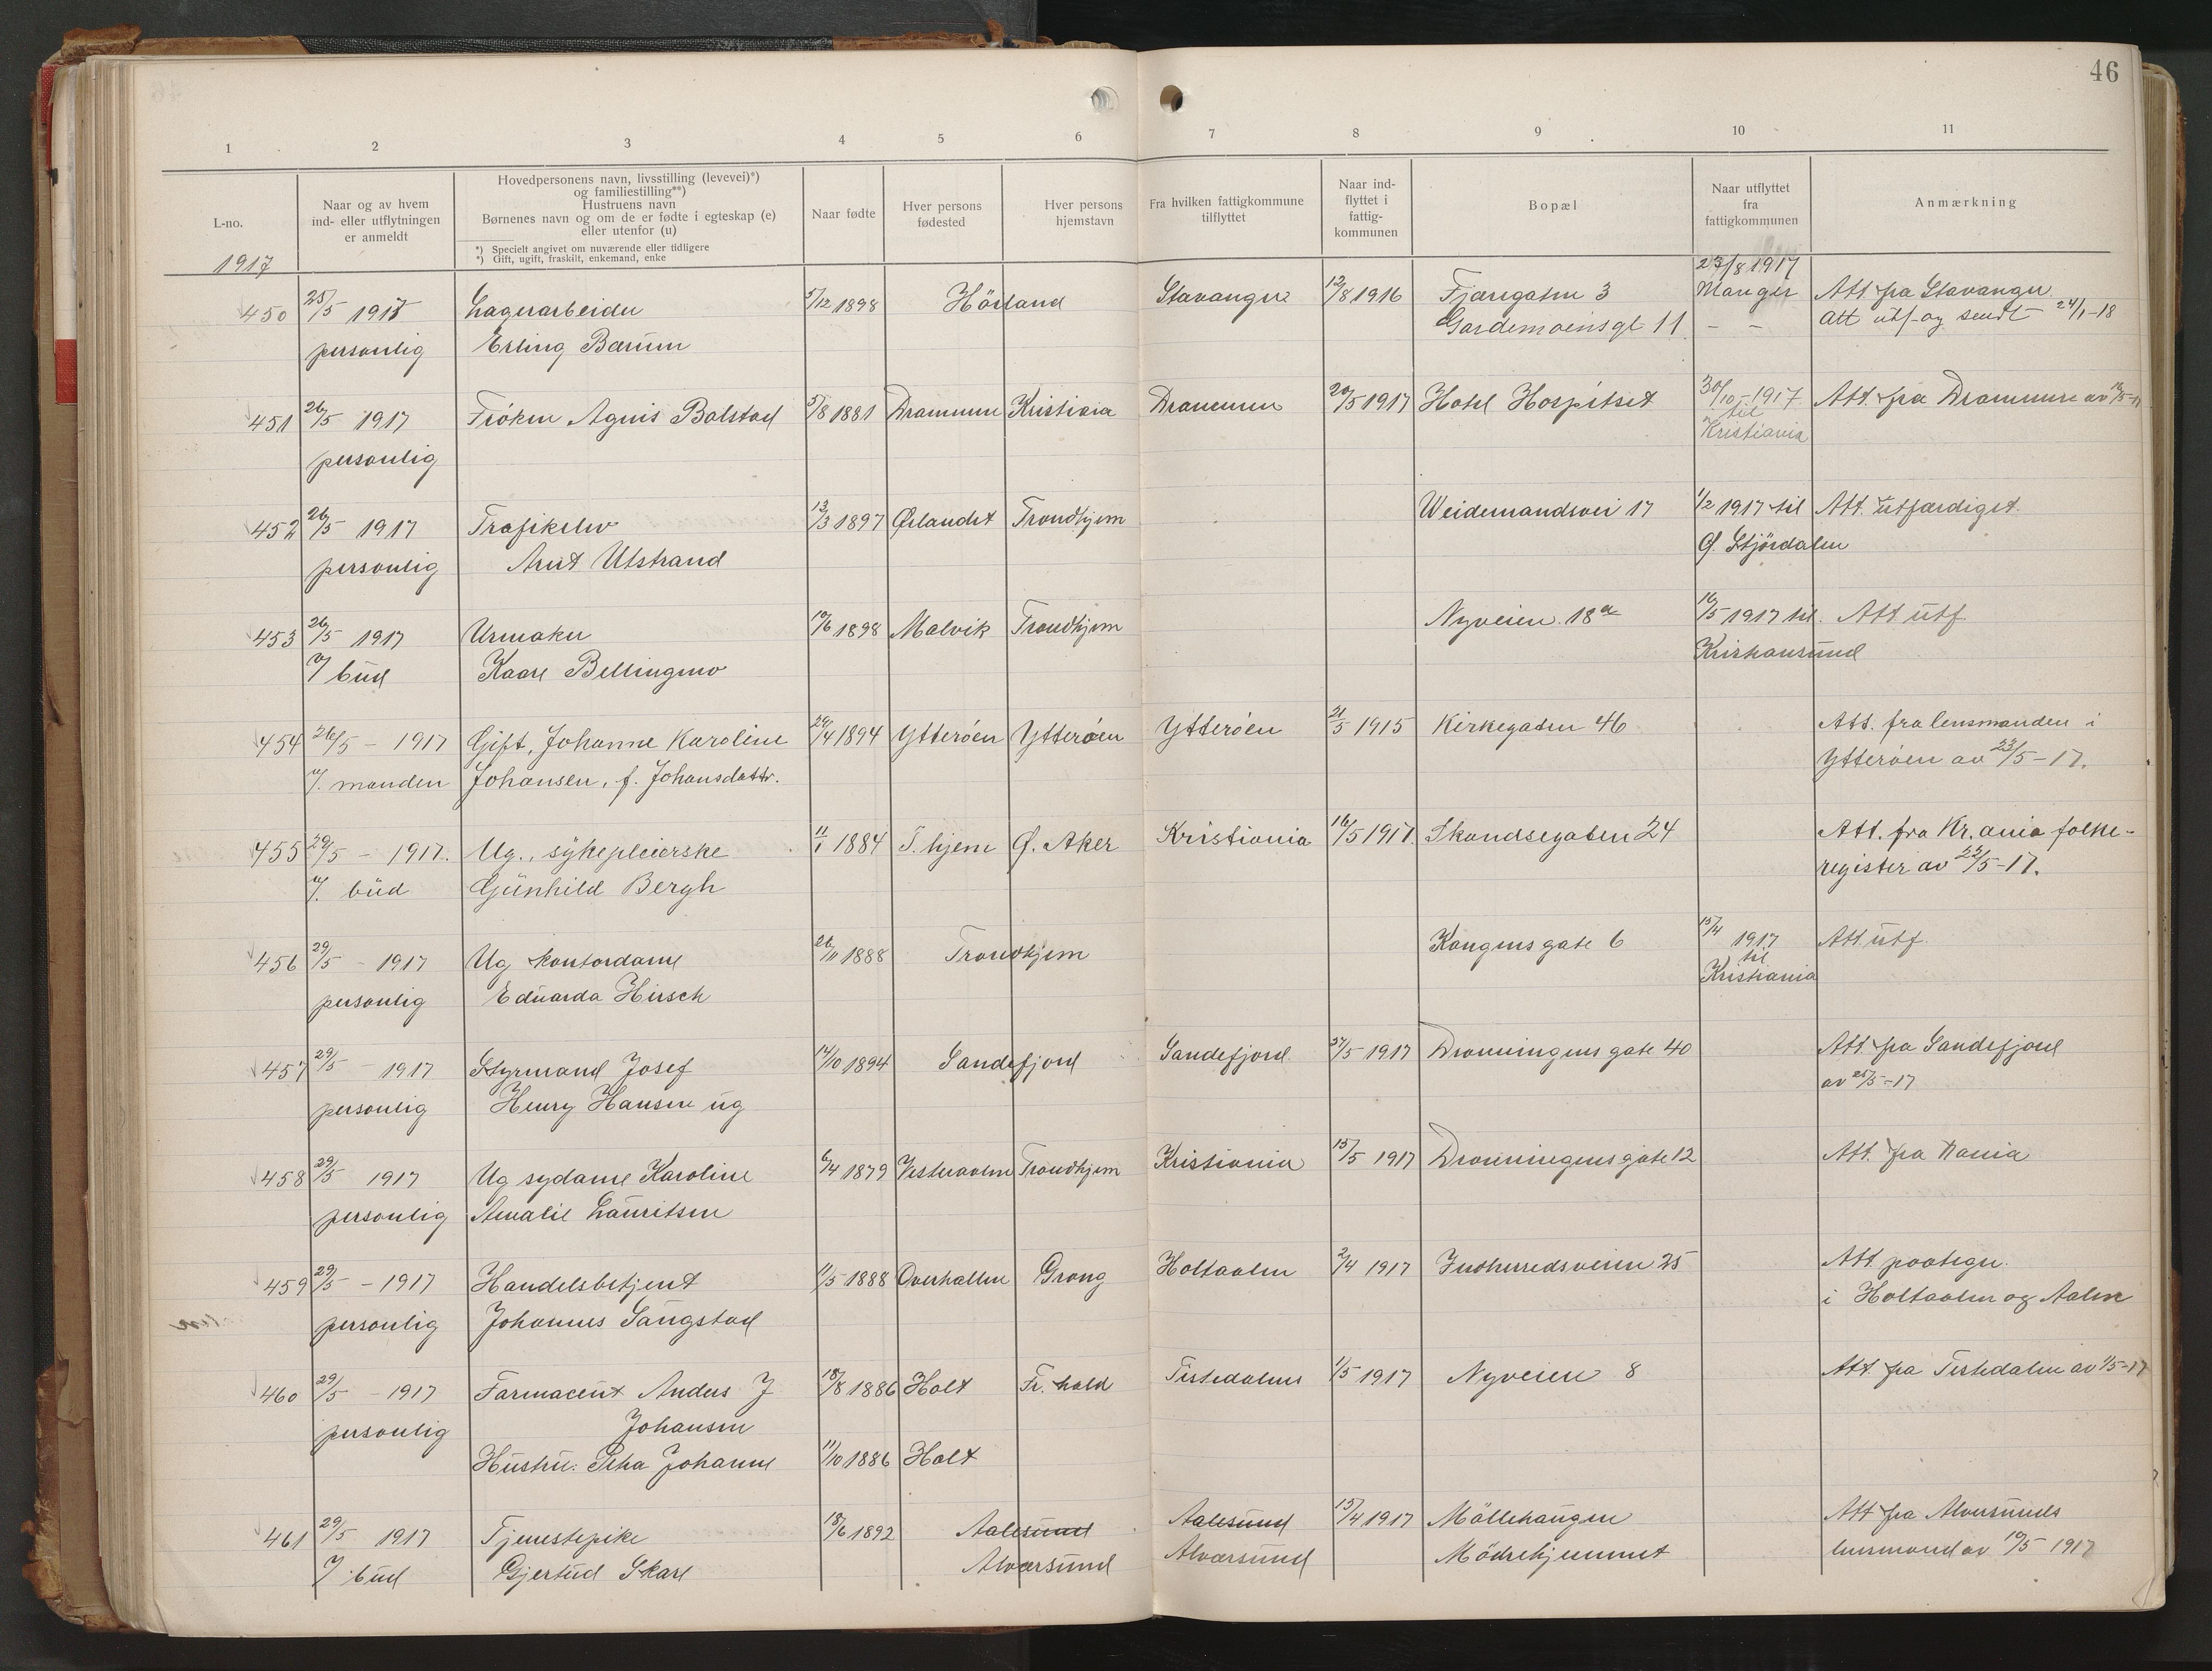 46
1 2 3 4 5 6 7 8 9 10 11
L-no.
Naar og av hvem
ind- eller utflytningen
er anmeldt
Hovedpersonens navn, livsstilling (levevei)*)
og familiestilling**)
Hustruens navn
Børnenes navn og om de er fødte i egteskap (e)
eller utenfor (u)
*) Specielt angivet om nuværende eller tidligere
*) Gift, ugift, fraskilt, enkemand, enke
Naar fødte
Hver persons
fødested
Hver persons
hjemstavn
Fra hvilken fattigkommune
tilflyttet
Naar ind-
flyttet i
fattig-
kommunen
Bopæl
Naar utflyttet
fra
fattigkommunen
Anmærkning
1917
23/8 1917
450 25/5 1917 Lagerarbeider 5/12 1898 Hörland Stavanger 12/8 1916 Fjæregaten 3 Manger Att. fra Stavanger
Gardemoensgt 11. – – Att utf. og sendt 24/1-18
personlig Erling Bærum
451 26/5 1917 Fröken Agnes Bolstad 5/8 1881 Drammen Kristiania Drammen 20/5 1917 Hotel Hospitset 30/10 - 1917 Att. fra Drammen av
til
Kristiania
personlig
452 26/5 1917 Trafikelev 13/3 1897 Ørlandet Trondhjem Weidemandsvei 17 1/2 1917 til Att. utfærdiget.
personlig Arnt Utstrand Ø. Stjördalen
453 26/5 1917 Urmaker 10/6 1898 Malvik Trondhjem Nyveien 18a 16/5 1917 til Att utf.
v/ bud Kaare Bellingmo Kristiansund
454 26/5 - 1917 Gift, Johanne Karoline 29/4 1894 Ytterøen Ytterøen Ytterøen 21/5 1915 Kirkegaten 46 Att. fra lensmanden i
v/. manden Johansen, f. Johansdattr. Ytterøen av 23/5-17.
455 29/5 - 1917. Ug., sykepleierske 11/1 1884 T.hjem Ø. Aker Kristiania 16/5 1917. Skandsegaten 24 Att. fra Kr.ania folke-
v/. bud Gunhild Bergh register av 22/5-17.
456 29/5 - 1917 Ug kontordame 26/11 1888 Trondhjem Kongens gate 6 15/4 1917 Att utf.
til
personlig Eduarda Hirsch Kristiania
457 29/5 - 1917 Styrmand Josef 14/10 1894 Sandefjord Sandefjord /5 1917 Dronningens gate 40 Att. fra Sandefjord
personlig Henry Hansen ug av 25/5-17
458 29/5 1917 Ug sydame Karoline 6/4 1879 Vesteraalen Trondhjem Kristiania 15/5 1917 Dronningens gate 12 Att. fra Kania
personlig Amalie Lauritsen
459 29/5 - 1917 Handelsbetjent 11/5 1888 Overhallen Grong Holtaalen 2/4 1917 Indherredsveien 25 Att. paategn.
personlig Johannes Saugstad i Holtaalen og Aalen
460 29/5 - 1917 Farmaceut Anders J 18/8 1886 Holt Fr. hald Tistedalens 1/5 1917 Nyveien 8 Att. fra Tistedalen av 1/5-17
personlig Johansen
Hustru: Johanne 11/10 1886 Holt
461 29/5 1917 Tjenestepike 18/6 1892 Aalesund Aalesund 15/4 1917 Möllehaugen Att fra Alversunds
v/ bud Gjertud Skare Alværsund Alværsund Mödrehjemmet lensmand av 10/5 1917